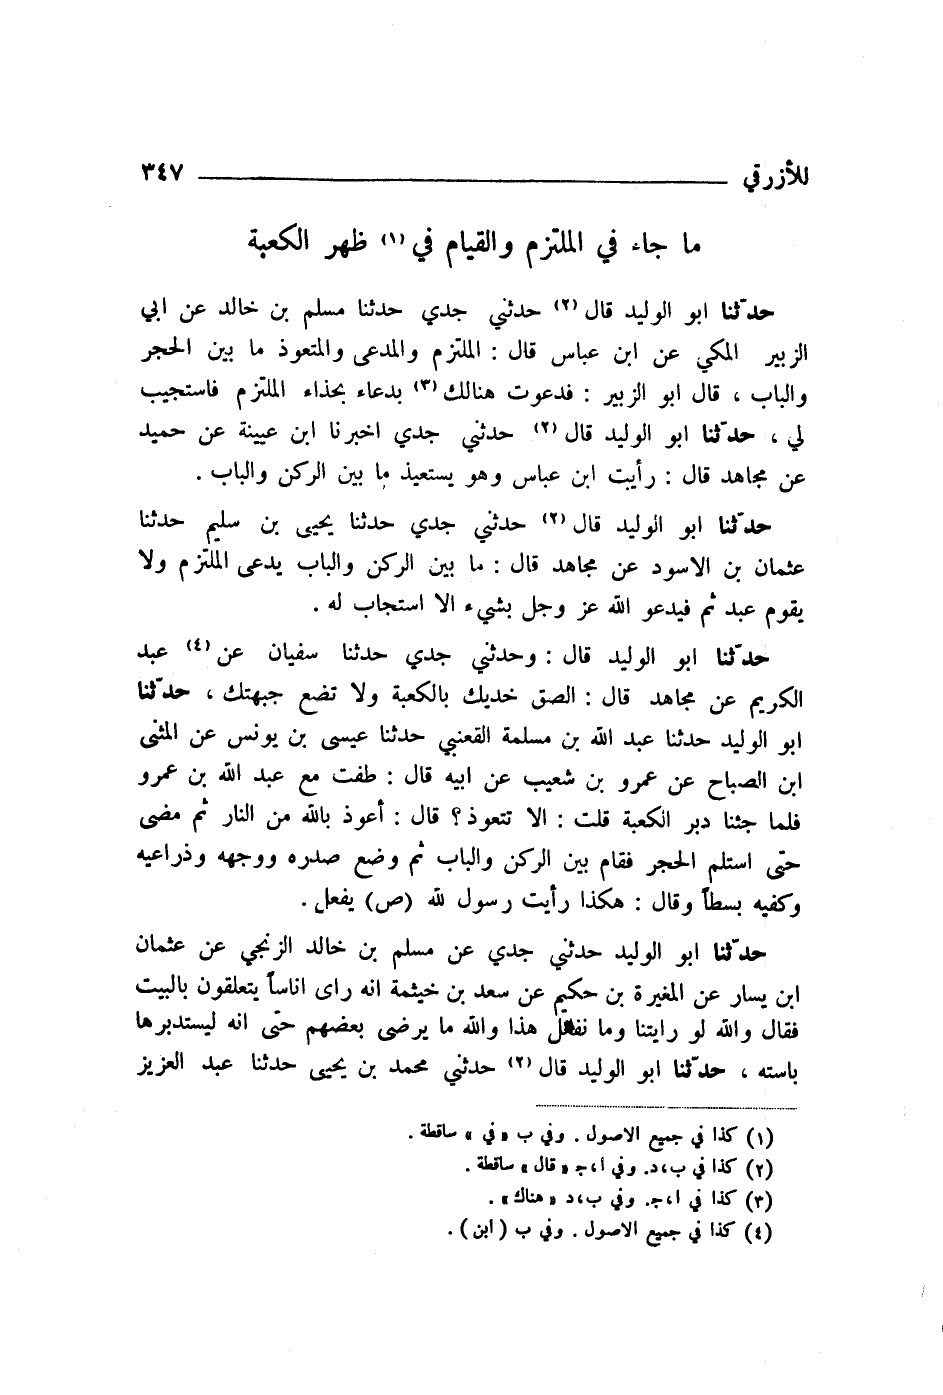 للأزرقي ٣٤٧
ما جاء في الملتزم والقيام في (١) ظهر الكعبة
حدّثنا ابو الوليد قال (٢) حدثني جدي حدثنا مسلم بن خالد عن ابي
الزبير المكي عن ابن عباس قال : الملتزم والمدعى والمتعوذ ما بين الحجر
والباب ، قال ابو الزبير : فدعوت هنالك (٣) بدعاء بحذاء الملتزم فاستجيب
لي ، حدّثنا ابو الوليد قال (٢) حدثني جدي اخبرنا ابن عيينة عن حميد
عن مجاهد قال : رأيت ابن عباس وهو يستعيذ ما بين الركن والباب .
حدّثنا ابو الوليد قال (٢) حدثني جدي حدثنا يحيى بن سليم حدثنا
عثمان بن الاسود عن مجاهد قال : ما بين الركن والباب يدعى الملتزم ولا
يقوم عبد ثم فيدعو الله عز وجل بشيء الا استجاب له .
حدّثنا ابو الوليد قال : وحدثني جدي حدثنا سفيان عن (٤) عبد
الكريم عن مجاهد قال : الصق خديك بالكعبة ولا تضع جبهتك ، حدّثنا
ابو الوليد حدثنا عبد الله بن مسلمة القعنبي حدثنا عيسى بن يونس عن المثنى
ابن الصباح عن عمرو بن شعيب عن ابيه قال : طفت مع عبد الله بن عمرو
فلما جئنا دبر الكعبة قلت : الا تتعوذ؟ قال : أعوذ بالله من النار ثم مضى
حتى استلم الحجر فقام بين الركن والباب ثم وضع صدره ووجهه وذراعيه
وكفيه بسطاً وقال : هكذا رأيت رسول لله (ص) يفعل .
حدّثنا ابو الوليد حدثني جدي عن مسلم بن خالد الزنجي عن عثمان
ابن يسار عن المغيرة بن حكيم عن سعد بن خيثمة انه راى اناساً يتعلقون بالبيت
فقال والله لو رايتنا وما نفعل هذا والله ما يرضى بعضهم حتى انه ليستدبرها
باسته ، حدّثنا ابو الوليد قال (٢) حدثني محمد بن يحيى حدثنا عبد العزيز
(١) كذا في جميع الاصول . وفي ب «في» ساقطة .
(٢) كذا في ب،د. وفي ا،ج «قال» ساقطة .
(٣) كذا في ا،ج. وفي ب،د «هناك» .
(٤) كذا في جميع الاصول . وفي ب (ابن) .